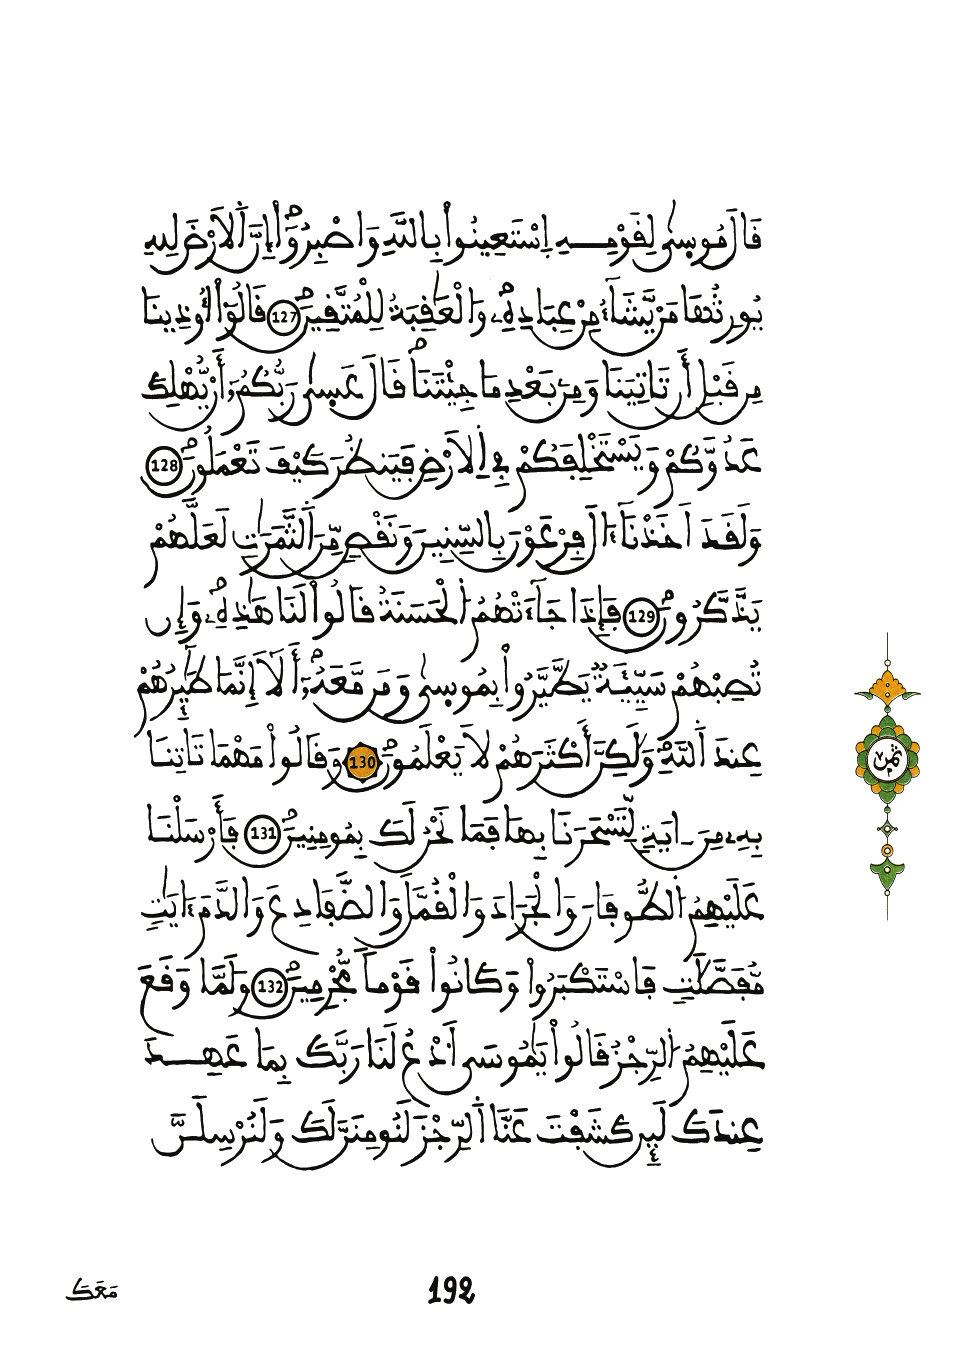 قَالَ مُوسِىٰ لِقَوْمِهِ اِسْتَعِينُوا بِاللَّهِ وَاصْبِرُوٓاْ إِنَّ اَلَارْضَ لِلهِ
يُورِثُهَا مَنْ يَّشَآءُ مِنْ عِبَادِهِۦۖ وَالْعَٰقِبَةُ لِلْمُتَّقِينَۖ 127 قَالُوٓاْ أُوذِينَا
مِن قَبْلِ أَن تَاتِيَنَا وَمِنۢ بَعْدِ مَا جِئْتَنَاۖ قَالَ عَسِىٰ رَبُّكُمُۥٓ أَنْ يُّهْلِكَ
عَدُوَّكُمْ وَيَسْتَخْلِفَكُمْ فِے اِلَارْضِ فَيَنظُرَ كَيْفَ تَعْمَلُونَۖ 128
وَلَقَدَ اَخَذْنَآ ءَالَ فِرْعَوْنَ بِالسِّنِينَ وَنَقْصٍ مِّنَ اَلثَّمَرَٰتِ لَعَلَّهُمْ
يَذَّكَّرُونَۖ 129 فَإِذَا جَآءَتْهُمُ اُلْحَسَنَةُ قَالُواْ لَنَا هَٰذِهِۦۖ وَإِن
تُصِبْهُمْ سَيِّئَةٌ يَطَّيَّرُواْ بِمُوسِىٰ وَمَن مَّعَهُۥٓۖ أَلَآ إِنَّمَا طَٰٓئِرُهُمْ
عِندَ اَللَّهِۖ وَلَٰكِنَّ أَكْثَرَهُمْ لَا يَعْلَمُونَۖ 130 وَقَالُواْ مَهْمَا تَاتِنَا
بِهِۦ مِنَ ـ ايَةٍ لِّتَسْحَرَنَا بِهَا فَمَا نَحْنُ لَكَ بِمُومِنِينَۖ 131 فَأَرْسَلْنَا
عَلَيْهِمُ اُلطُّوفَانَ وَالْجَرَادَ وَالْقُمَّلَ وَالضَّفَادِعَ وَالدَّمَ ءَايَٰتٍ
مُّفَصَّلَٰتٍ فَاسْتَكْبَرُواْ وَكَانُواْ قَوْماً مُّجْرِمِينَۖ 132 وَلَمَّا وَقَعَ
عَلَيْهِمُ اُلرِّجْزُ قَالُواْ يَٰمُوسَى اَدْعُ لَنَا رَبَّكَ بِمَا عَهِدَ
عِندَكَ لَئِن كَشَفْتَ عَنَّا اَلرِّجْزَ لَنُومِنَنَّ لَكَ وَلَنُرْسِلَنَّ
ثمن
مَعَكَ
192